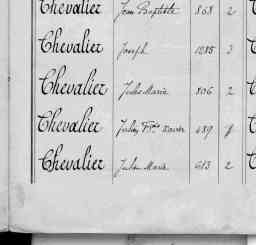 Chevalier Jean Baptiste 868 2
Chevalier Joseph 1285 3
Chevalier Jules Marie 806 2
Chevalier Jules 489
Chevalier Julien Marie 613 2